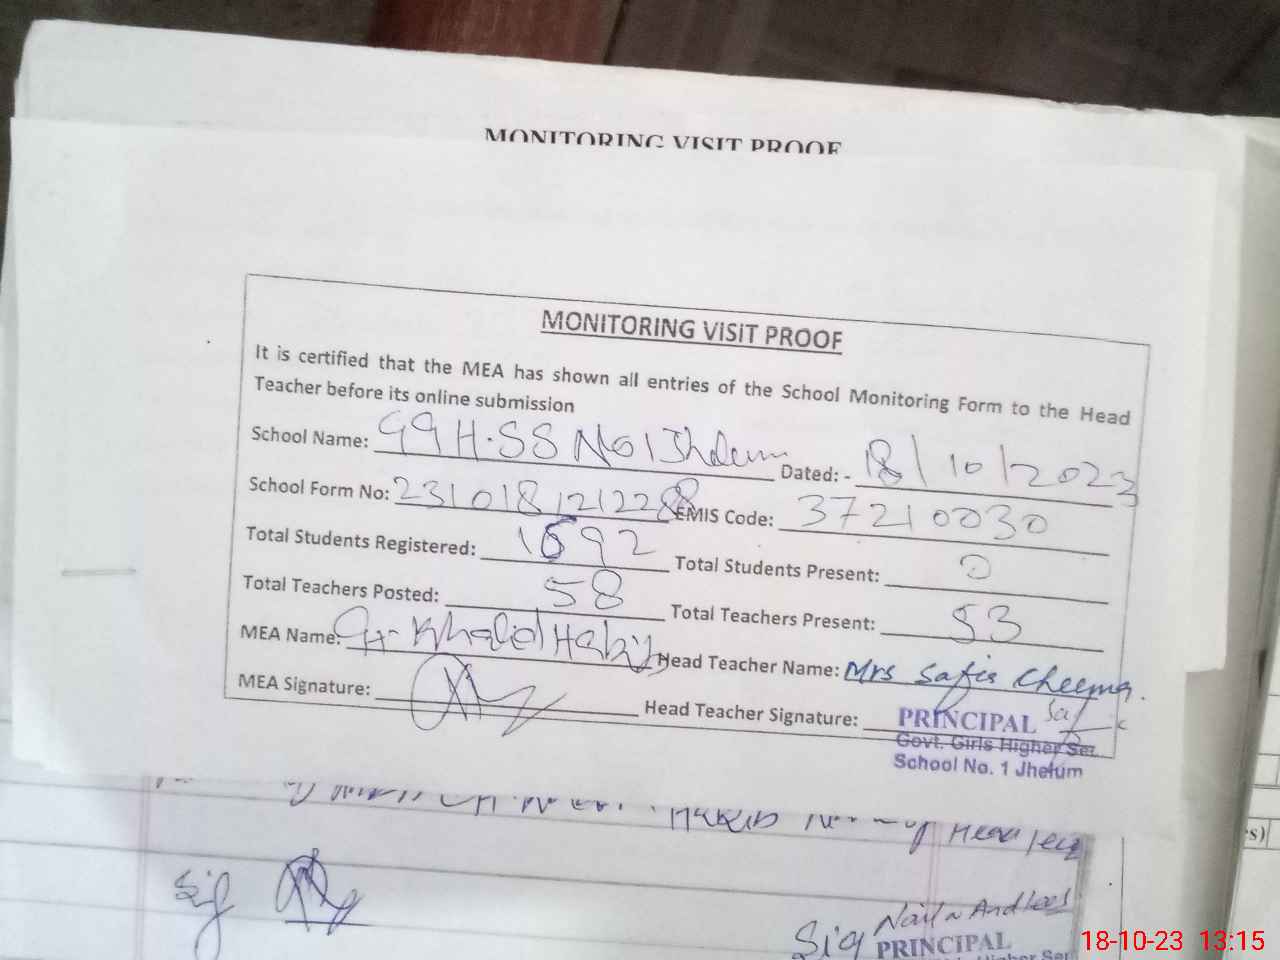 MONITORING VISIT PROOF
MONITORING VISIT PROOF
It is certified that the MEA has shown all entries of the School Monitoring Form to the Head
Teacher before its online submission
School Name: GGH.SS No 1 Jhelum Dated: - 18/10/2023
School Form No: 231018121228 EMIS Code: 37210030
Total Students Registered: 1692 Total Students Present: 0
Total Teachers Posted: 58 Total Teachers Present: 53
MEA Name: Ch. Khalid Habib Head Teacher Name: Mrs Safia Cheema.
MEA Signature: Head Teacher Signature:
PRINCIPAL
Govt. Girls Higher Sec.
School No. 1 Jhelum
s)
Sig
Sig
PRINCIPAL
18-10-23 13:15